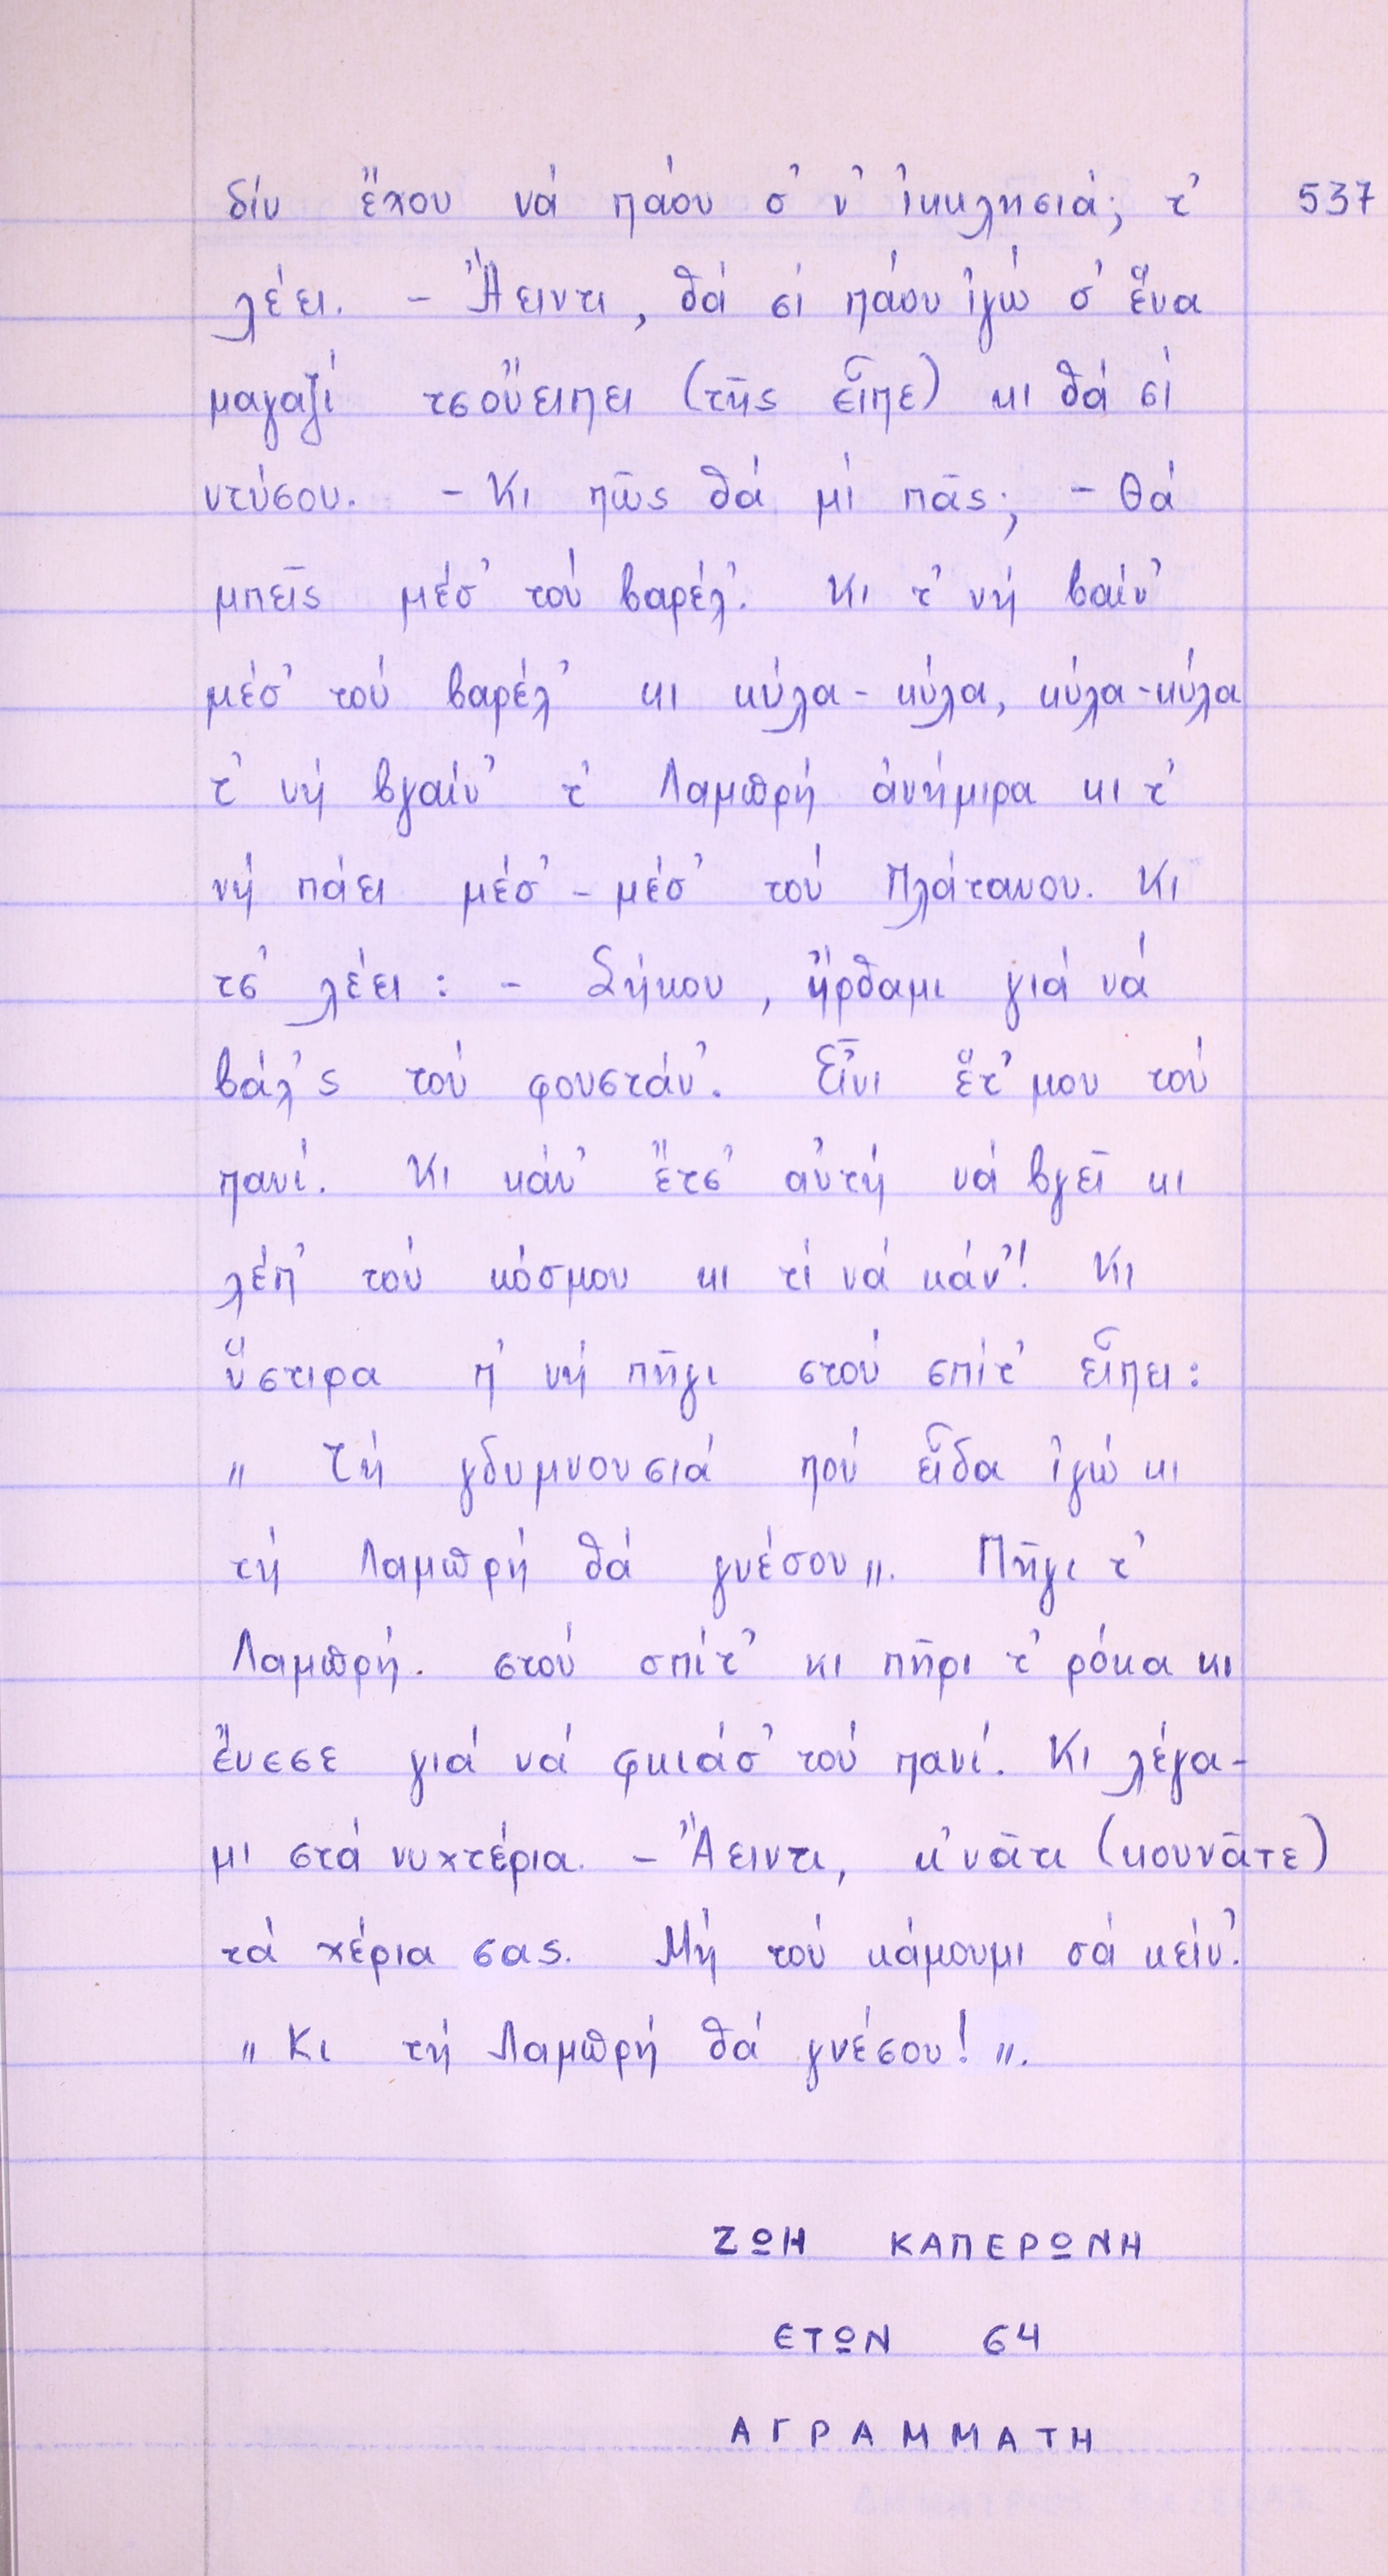 δίν ἔχου νά πάου σ' ν' ἰκκλησιά; τ' 537
λέει. - Ἄειντι, θά σί πάου ἰγώ σ' ἕνα
μαγαζί τσοὔειπει (τῆς εἶπε) κι θά σί
ντύσου. - Κι πῶς θά μί πᾶς; - Θά
μπεῖς μέσ' τού βαρέλ'. Κι τ' νή βαίν'
μέσ' τού βαρέλ' κι κύλα-κύλα, κύλα-κύλα
τ' νή βγαίν' τ' Λαμπρή ἀνήμιρα κι τ'
νή πάει μέσ' - μέσ' τού Πλάτανου. Κι
τσ' λέει: - Σήκου, ἤρθαμι γιά νά
βάλ'ς τού φουστάν'. Εἶνι ἕτ'μου τού
πανί. Κι κάν' ἔτσ' αὐτή νά βγεῖ κι
λέπ' τού κόσμου κι τί νά κάν'! Κι
ὕστιρα π' νή πῆγι στού σπίτ' εἶπει:
" Τή γδυμνουσιά πού εἶδα ἰγώ κι
τή Λαμπρή θά γνέσου". Πῆγι τ'
Λαμπρή. στού σπίτ' κι πῆρι τ' ρόκα κι
ἔνεσε γιά νά φκιάσ' τού πανί. Κι λέγα-
μι στά νυχτέρια. - Ἄειντι, κ'νᾶτι (κουνᾶτε)
τά χέρια σας. Μή τού κάμουμι σά κείν'.
" Κι τή Λαμπρή θά γνέσου! ".
ΖΩΗ ΚΑΠΕΡΩΝΗ
ΕΤΩΝ 64
ΑΓΡΑΜΜΑΤΗ